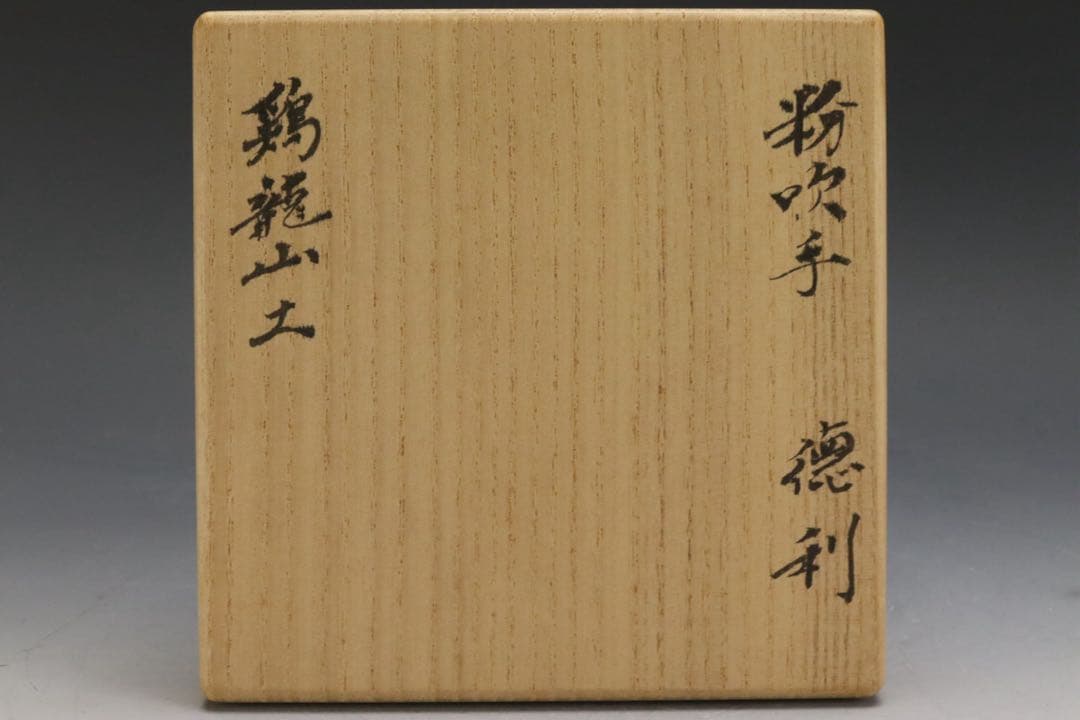 粉吹手 徳利
鶏龍山土